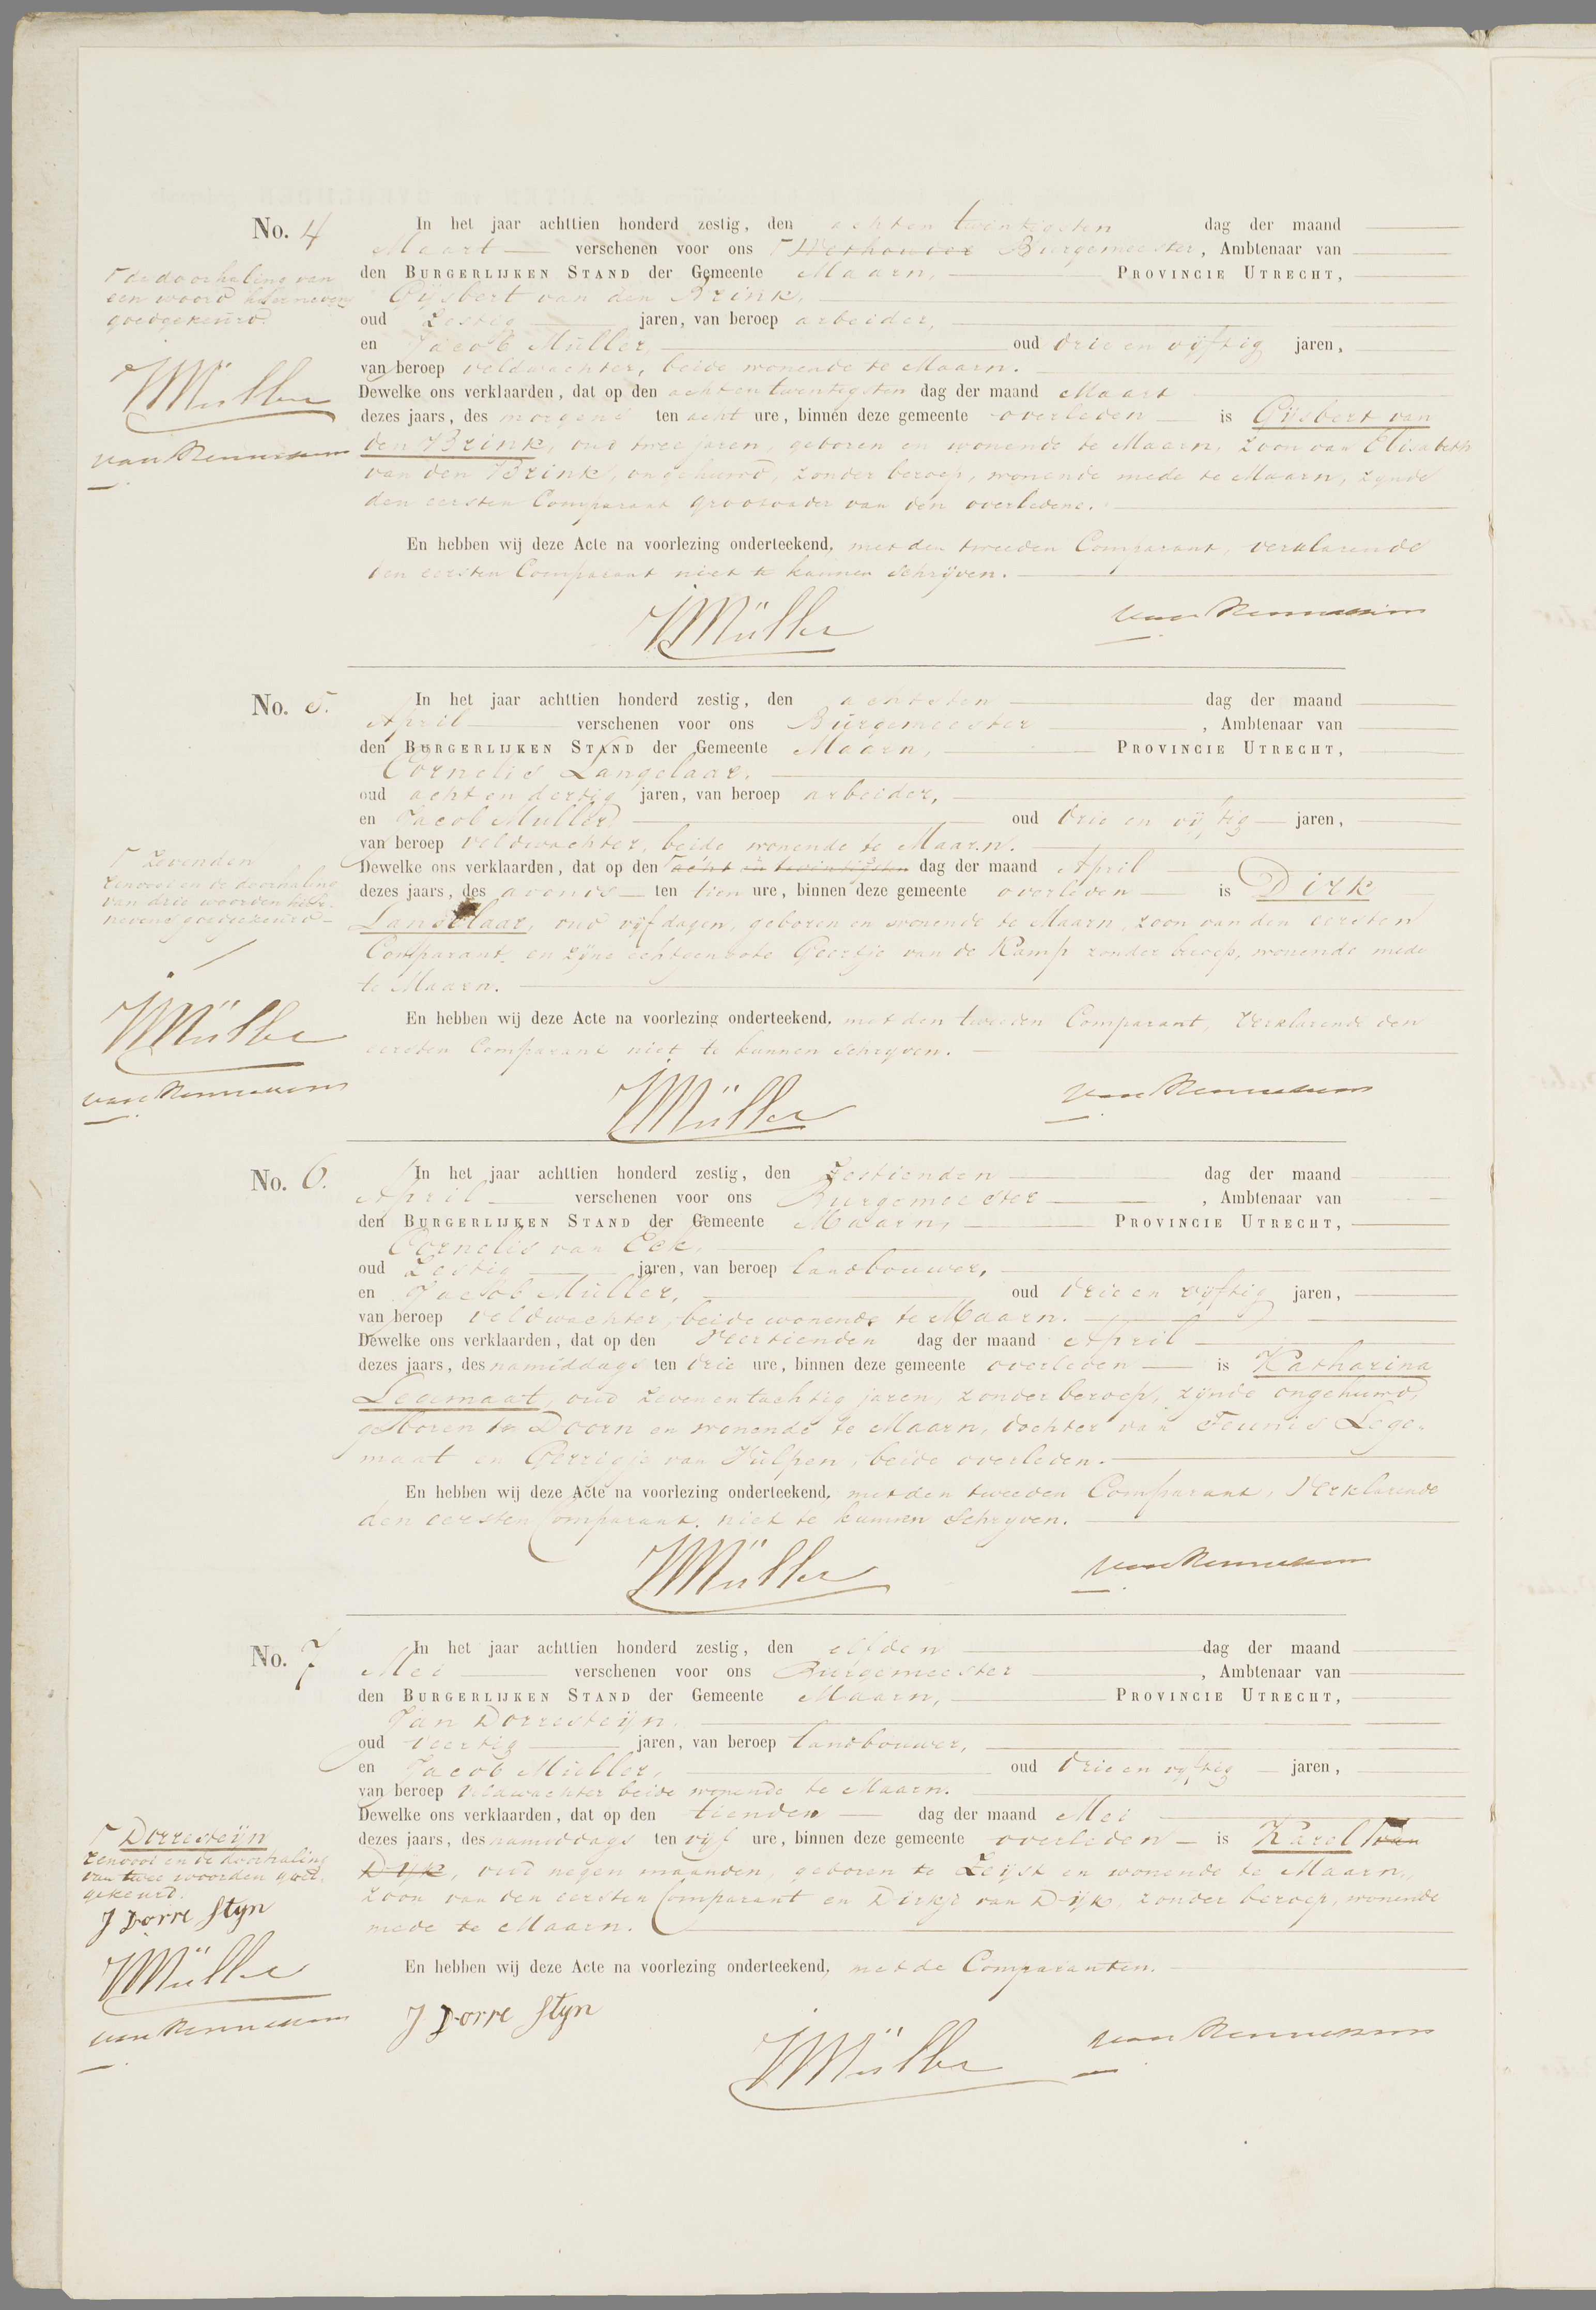 No. 4
In het jaar achttien honderd zestig, den acht en twintigsten dag der maand
Maart verschenen voor ons Wethouder Burgemeester, Ambtenaar van
den BURGERLIJKEN STAND der Gemeente Maarn, PROVINCIE UTRECHT,
Gijsbert van den Brink,
oud zestig jaren, van beroep arbeider,
en Jacob Müller, oud drie en vijftig jaren,
van beroep veldwachter, beide wonende te Maarn.
Dewelke ons verklaarden, dat op den acht en twintigsten dag der maand Maart
dezes jaars, des morgens ten acht ure, binnen deze gemeente overleden is Gijsbert van
den Brink, oud twee jaren, geboren en wonende te Maarn, zoon van Elisabeth
van den Brink, ongehuwd, zonder beroep, wonende mede te Maarn, zynde
den eersten Comparant grootvader van den overledene.
En hebben wij deze Acte na voorlezing onderteekend, met den tweeden Comparant, verklarende
den eersten Comparant niet te kunnen schrijven.
JMüller van Rennessen
de doorhaling van
een woord hiernevens
goedgekeurd.
JMüller
van Rennessen
No. 5.
In het jaar achttien honderd zestig, den achtsten dag der maand
April verschenen voor ons Burgemeester, Ambtenaar van
den BURGERLIJKEN STAND der Gemeente Maarn, PROVINCIE UTRECHT,
Cornelis Langelaar,
oud acht en dertig jaren, van beroep arbeider,
en Jacob Müller, oud drie en vijftig jaren,
van beroep veldwachter, beide wonende te Maarn.
Dewelke ons verklaarden, dat op den acht en twintigsten dag der maand April
dezes jaars, des avonds ten tien ure, binnen deze gemeente overleden is Dirk
Langelaar, oud vijf dagen, geboren en wonende te Maarn, zoon van den eersten
Comparant en zijne echtgenoote Geertje van de Kamp zonder beroep, wonende mede
te Maarn.
En hebben wij deze Acte na voorlezing onderteekend, met den tweeden Comparant, verklarende den
eersten Comparant niet te kunnen schryven.
JMüller van Rennessen
zevenden
renvooi en de doorhaling
van drie woorden hier-
nevens goedgekeurd
JMüller
van Rennessen
No. 6.
In het jaar achttien honderd zestig, den zestienden dag der maand
April verschenen voor ons Burgemeester, Ambtenaar van
den BURGERLIJKEN STAND der Gemeente Maarn, PROVINCIE UTRECHT,
Cornelis van Eck,
oud zestig jaren, van beroep landbouwer,
en Jacob Müller, oud drie en vijftig jaren,
van beroep veldwachter, beide wonende te Maarn.
Dewelke ons verklaarden, dat op den veertienden dag der maand April
dezes jaars, des namiddags ten drie ure, binnen deze gemeente overleden is Katharina
Legemaat, oud zeven en tachtig jaren, zonder beroep, zijnde ongehuwd,
geboren te Doorn en wonende te Maarn, dochter van Teunis Lege-
maat en Gerrigje van Vulpen, beide overleden.
En hebben wij deze Acte na voorlezing onderteekend, met den tweeden Comparant, verklarende
den eersten Comparant, niet te kunnen schryven.
JMüller van Rennessen
No. 7
In het jaar achttien honderd zestig, den elfden dag der maand
Mei verschenen voor ons Burgemeester, Ambtenaar van
den BURGERLIJKEN STAND der Gemeente Maarn, PROVINCIE UTRECHT,
Jan Dorresteijn,
oud veertig jaren, van beroep landbouwer,
en Jacob Müller, oud drie en vyftig jaren,
van beroep veldwachter beide wonende te Maarn.
Dewelke ons verklaarden, dat op den tienden dag der maand Mei
dezes jaars, des namiddags ten vijf ure, binnen deze gemeente overleden is Karel van
Dijk, oud negen maanden, geboren te Zeijst en wonende te Maarn,
zoon van den eersten Comparant en Dirkje van Dijk, zonder beroep, wonende
mede te Maarn.
En hebben wij deze Acte na voorlezing onderteekend, met de Comparanten.
J Dorre Styn JMüller van Rennessen
Dorresteijn
renvooi en de doorhaling
van twee woorden goed-
gekeurd.
J Dorre Styn
JMüller
van Rennessen